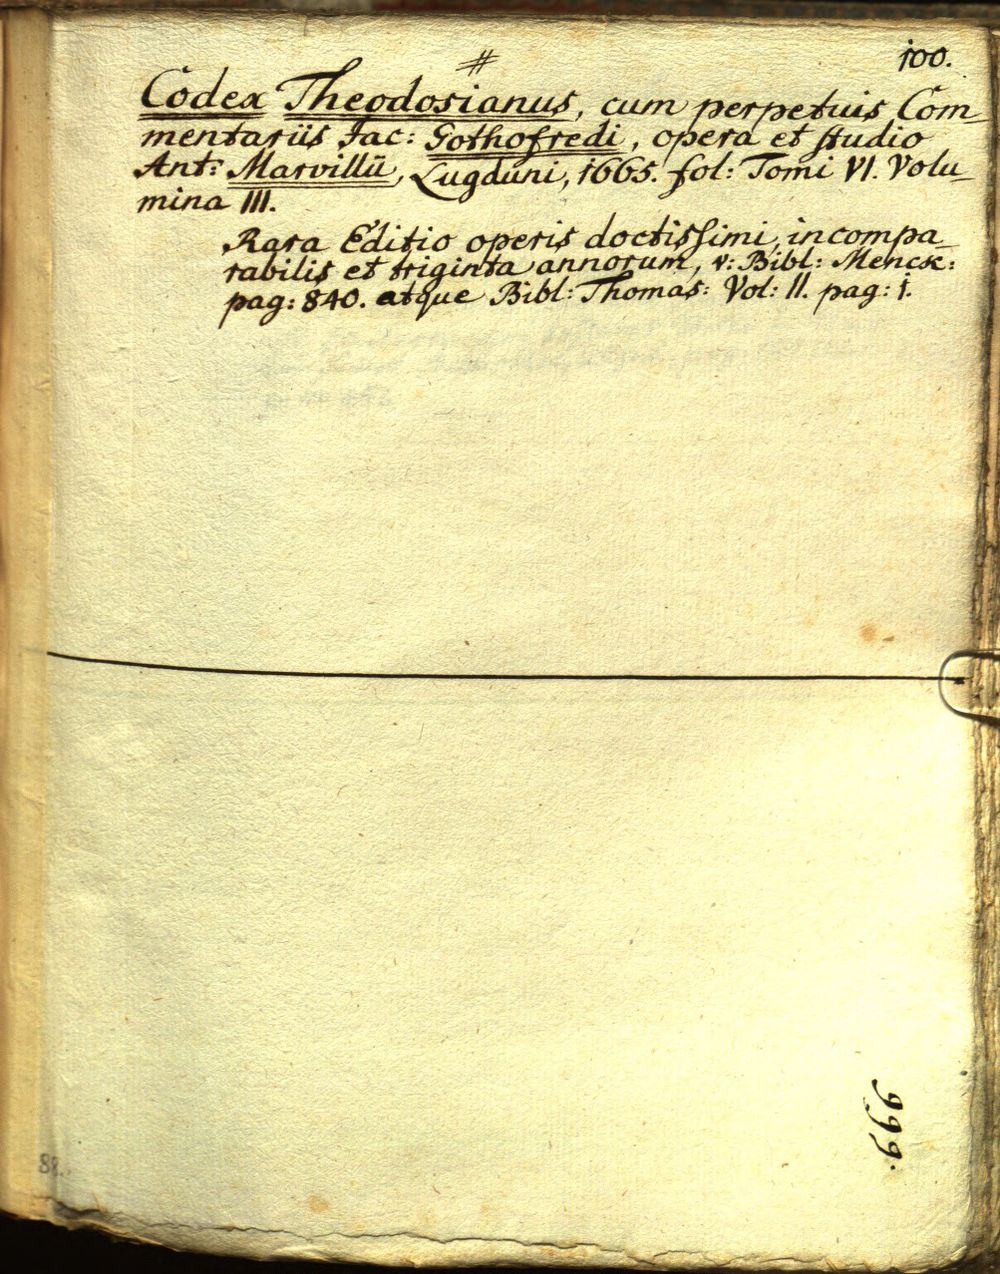 100.
#
Codex Theodosianus, cum perpetuis Com-
mentariis Jac: Gothofredi, opera et studio
Ant: Marvillii, Lugduni, 1665. fol: Tomi VI. Volu-
mina III.
Rara Editio operis doctissimi, incompa-
rabilis et triginta annorum, v: Bibl: Menck:
pag: 840. atque Bibl: Thomas: Vol: II. pag: 1.
999.
88.